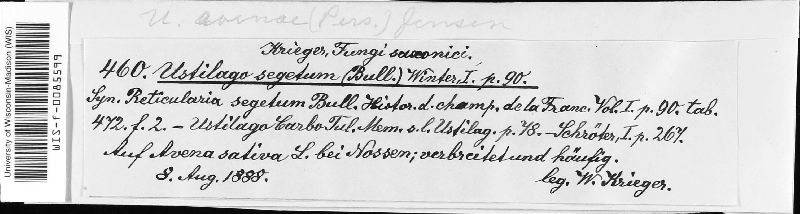 U. avenae (Pers.) Jensen
University of Wisconsin-Madison (WIS)
WIS-f-0085599
Krieger, Fungi saxonici.
460. Ustilago segetum (Bull.) Winter, I. p. 90.
Syn. Reticularia segetum Bull. Histor. d. champ. de la Franc. Vol. I. p. 90. tab.
472. f. 2. – Ustilago Carbo Tul. Mem. s. l. Ustilag. p. 78. – Schröter, I. p. 267.
Auf Avena sativa L. bei Nossen; verbreitet und häufig.
8. Aug. 1888. leg. W. Krieger.